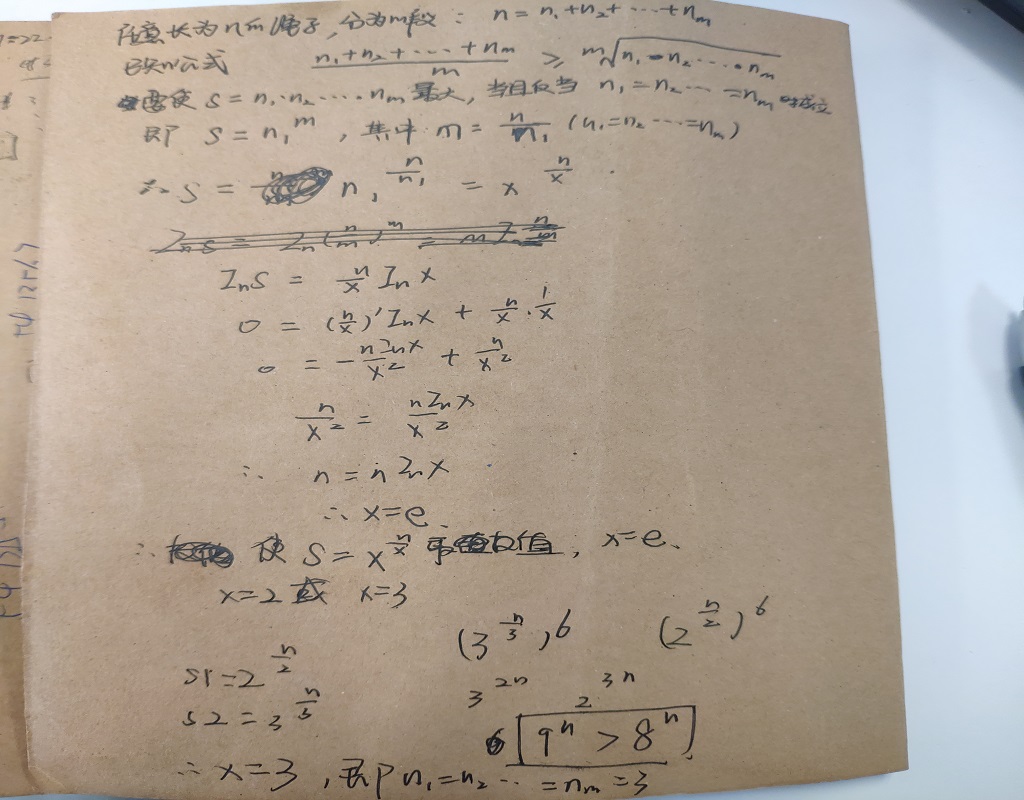 任意长为n的绳子,分为m段: n = n₁+n₂+……+nₘ
已知公式 (n₁+n₂+……+nₘ)/m ≥ ᵐ√(n₁·n₂·…·nₘ)
要使 S = n₁·n₂·…·nₘ 最大, 当且仅当 n₁=n₂…=nₘ 时成立
即 S = n₁ᵐ , 其中 m = n/n₁ (n₁=n₂…=nₘ)
∴ S = n₁^(n/n₁) = x^(n/x)
InS = n/x Inx
0 = (n/x)'Inx + n/x · 1/x
0 = -nInx/x² + n/x²
n/x² = nInx/x²
∴ n = nInx
∴ x=e.
∴ 使 S = x^(n/x) 取值, x=e.
x=2 或 x=3
(3^(n/3))^6 (2^(n/2))^6
S1=2^(n/2)
S2=3^(n/3) 3^(2n) 2^(3n)
9ⁿ > 8ⁿ
∴ x=3 , 即 n₁=n₂…=nₘ=3